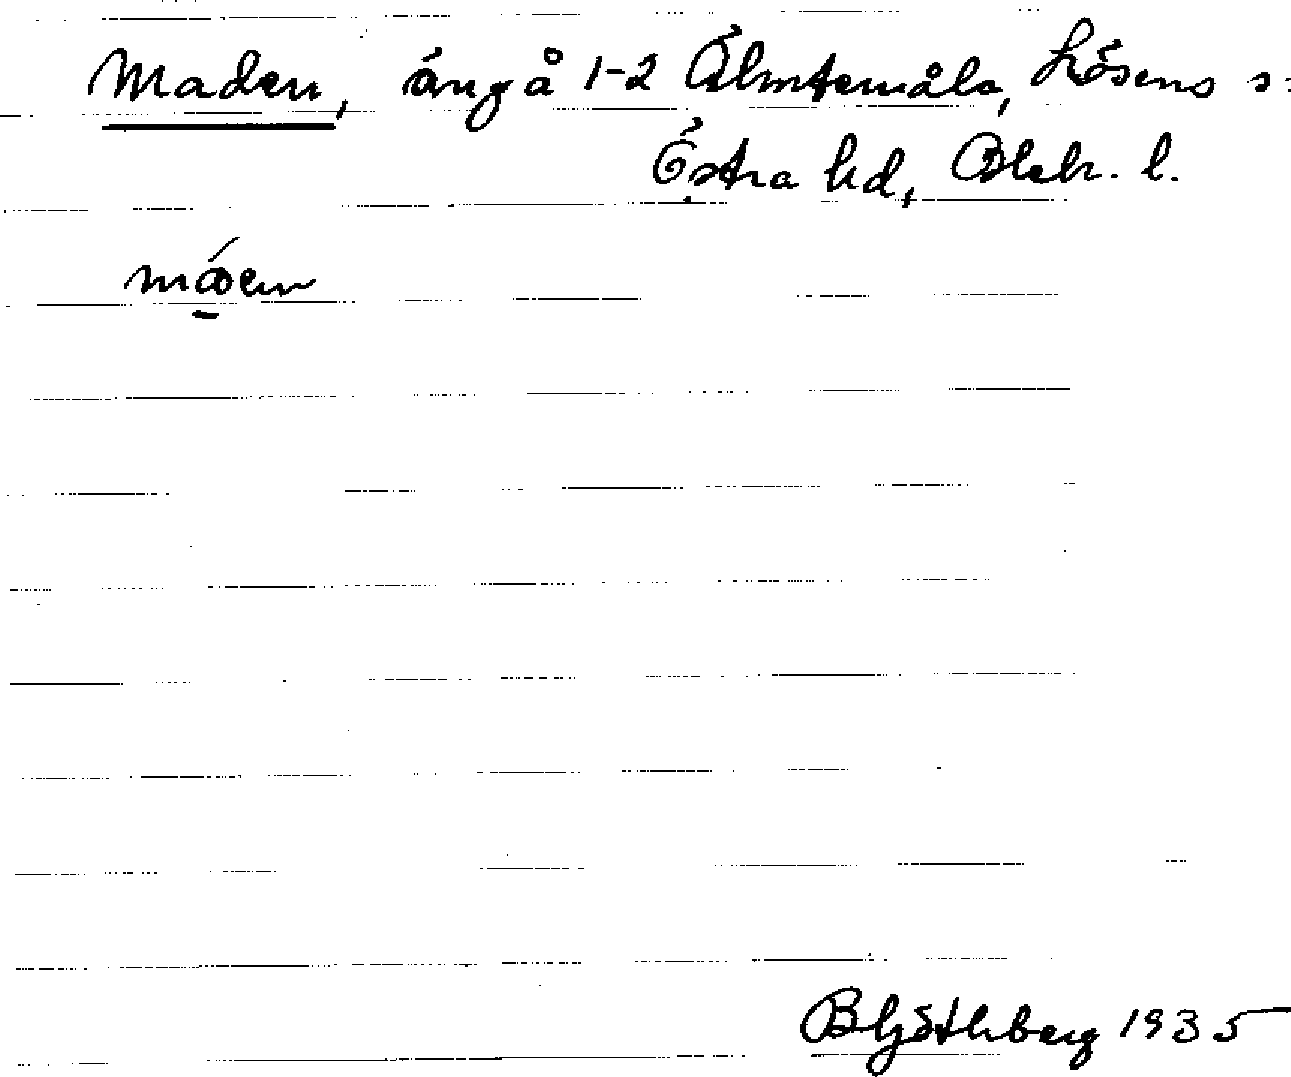 Maden, äng å 1-2 Älmtemåla, Lösens s:
Östra hd, Blek. l.
Bljöthberg 1935